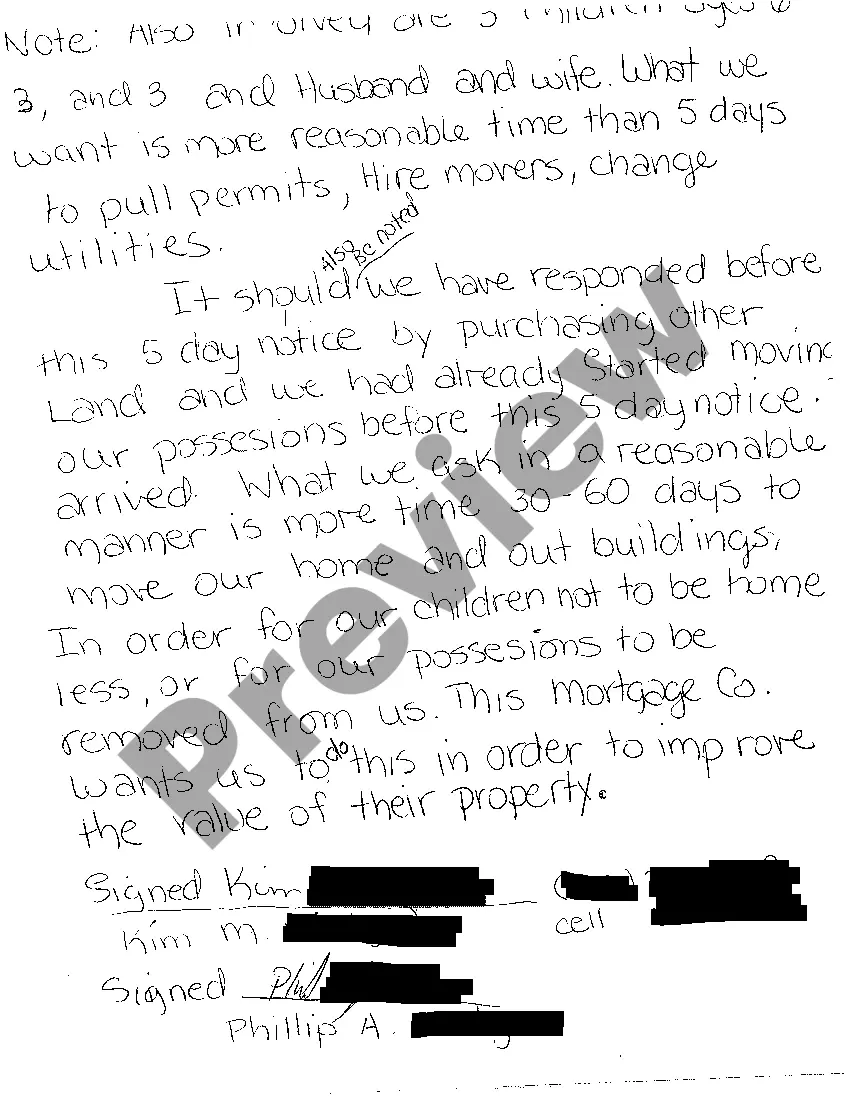 Note: Also involved are 3 children ages 6
3, and 3 and Husband and wife. What we
want is more reasonable time than 5 days
to pull permits, Hire movers, change
utilities.
Also
Be noted
It should we have responded before
this 5 day notice by purchasing other
Land and we had already Started moving
our possesions before this 5 day notice.
arrived. What we ask in a reasonable
manner is more time 30-60 days to
move our home and out buildings,
In order for our children not to be home
less, or for our possesions to be
removed from us. This Mortgage Co.
wants us to do this in order to improve
the value of their property.
Signed Kim
cell
Kim M.
Signed Phil
Phillip A.
Preview